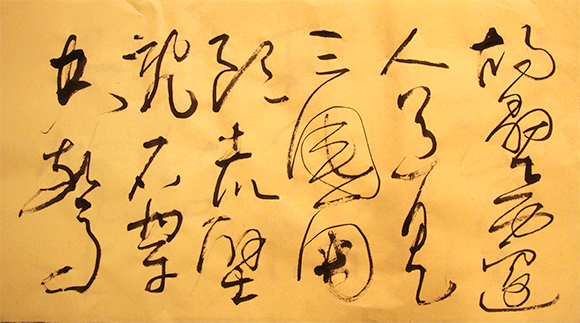 故壘西邊
人道是
三國周
郎赤壁
亂石穿
空驚